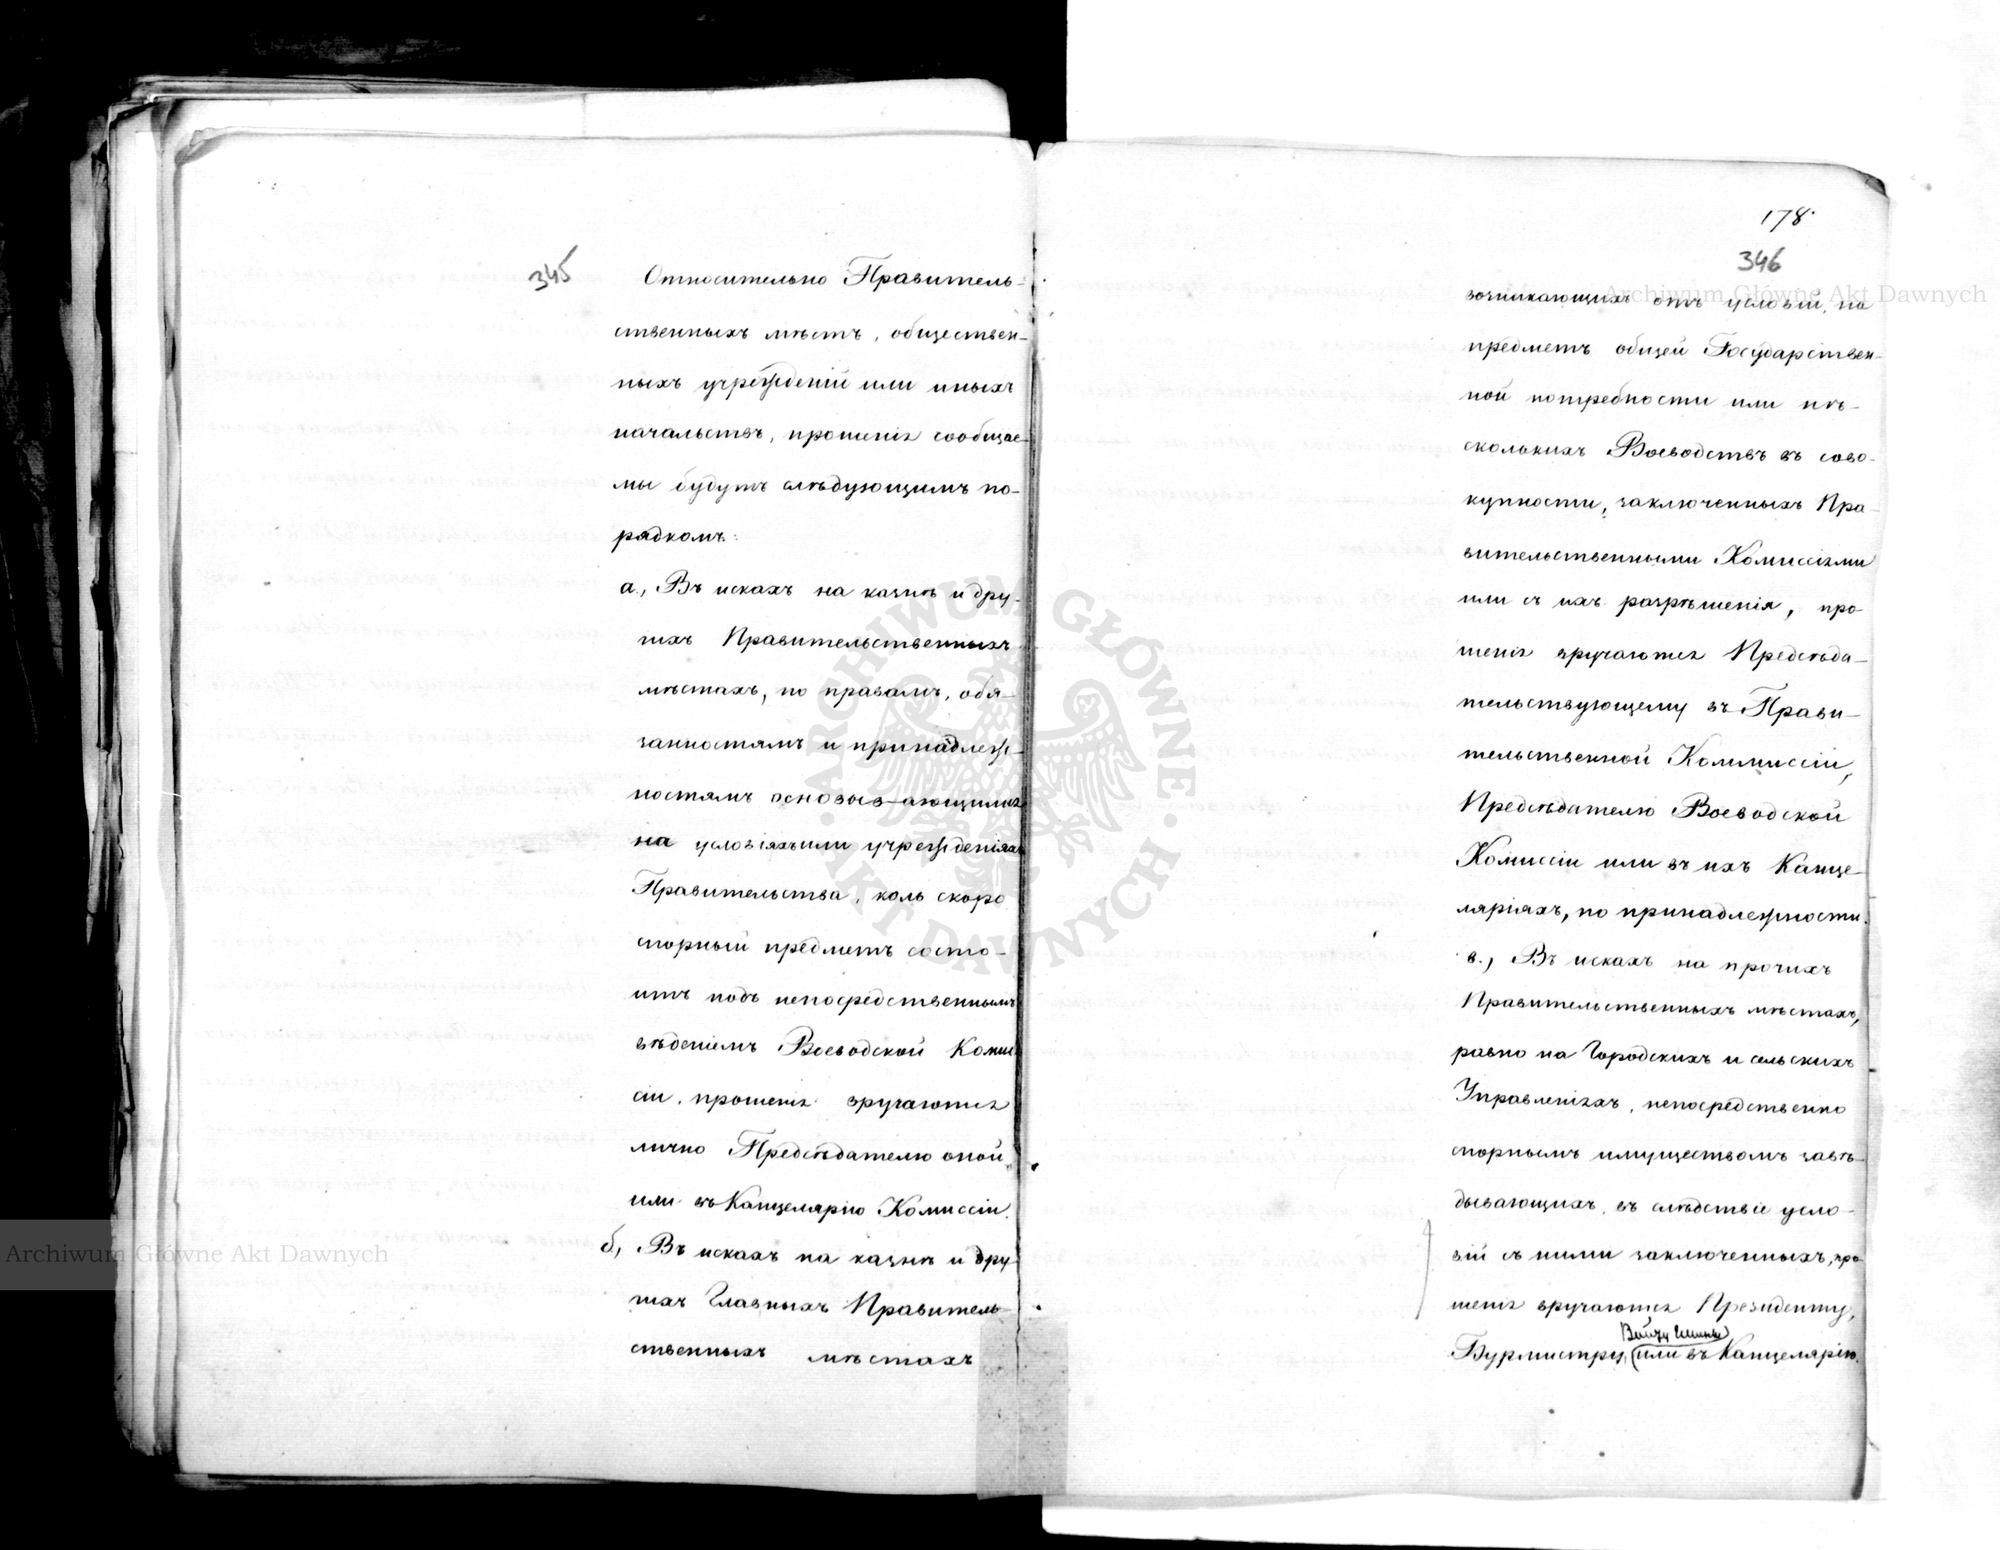 345
Относительно Правитель-
ственныхъ мѣстъ, обществен-
ныхъ учрежденій или иныхъ
начальствъ, прошенія сообщае-
мы будутъ слѣдующимъ по-
рядкомъ:
а., Въ искахъ на казнѣ и дру-
гихъ Правительственныхъ
мѣстахъ, по правамъ, обя-
занностямъ и принадлеж-
ностямъ основыв-ающимся
на условіяхъ или учрежденіяхъ
Правительства, коль скоро
спорный предметъ состо-
итъ подъ непосредственнымъ
вѣденіемъ Воеводской Комми
сіи, прошенія вручаются
лично Предсѣдателю оной
или въ Канцелярію Комиссіи.
б, Въ искахъ на казнѣ и дру
гихъ Главныхъ Правитель-
ственныхъ мѣстахъ
178.
346
возникающихъ отъ условій, на
предметъ общей Государствен-
ной потребности или нѣ-
сколькихъ Воеводствъ въ сово-
купности, заключенныхъ Пра-
вительственными Комиссіями
или съ ихъ разрѣшенія, про
шенія вручаются Предсѣда-
тельствующему въ Прави-
тельственной Коммиссіи,
Предсѣдателю Воеводской
Комиссіи или въ ихъ Канце-
ляріяхъ, по принадлежности.
в., Въ искахъ на прочихъ
Правительственныхъ мѣстахъ,
равно на Городскихъ и сельскихъ
Управленіяхъ, непосредственно
спорнымъ имуществомъ завѣ-
дывающихъ, въ слѣдствіе усло-
вій съ ними заключенныхъ, про
шенія вручаются Президенту,
Войту Гмины
Бурмистру, (или въ Канцелярію.
Archiwum Główne Akt Dawnych
Archiwum Główne Akt Dawnych
ARCHIWUM GŁÓWNE · AKT DAWNYCH ·